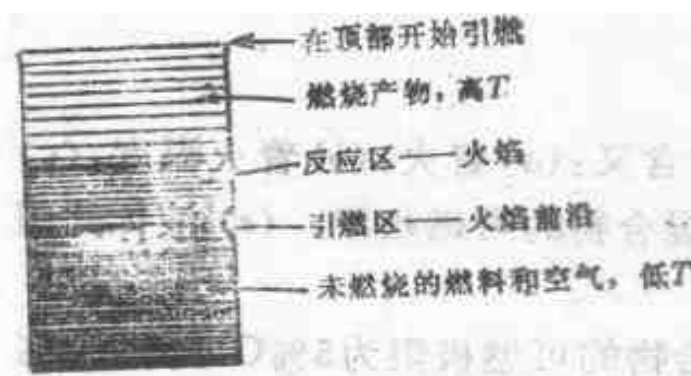 在顶部开始引燃
燃烧产物，高T
反应区——火焰
引燃区——火焰前沿
未燃烧的燃料和空气，低T